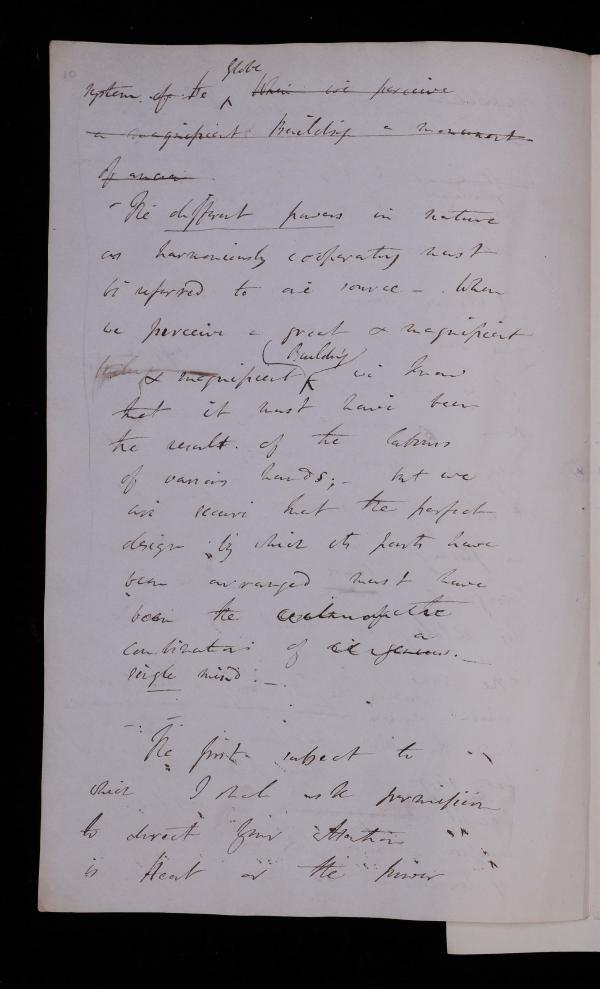 10
system of the globe When we perceive
a magnificent Building a monument
of ancien
The different powers in nature
as harmoniously cooperating must
be referred to one source – When
we perceive a great & magnificent
& magnificent Building we know
that it must have been
the result of the labours
of various hands; – but we
are secure that the perfect
design by which its parts have
been arranged must have
been the
combinations of a
single mind. –
The first subject to
which I shall ask permission
to direct your attention
is Heat or the power